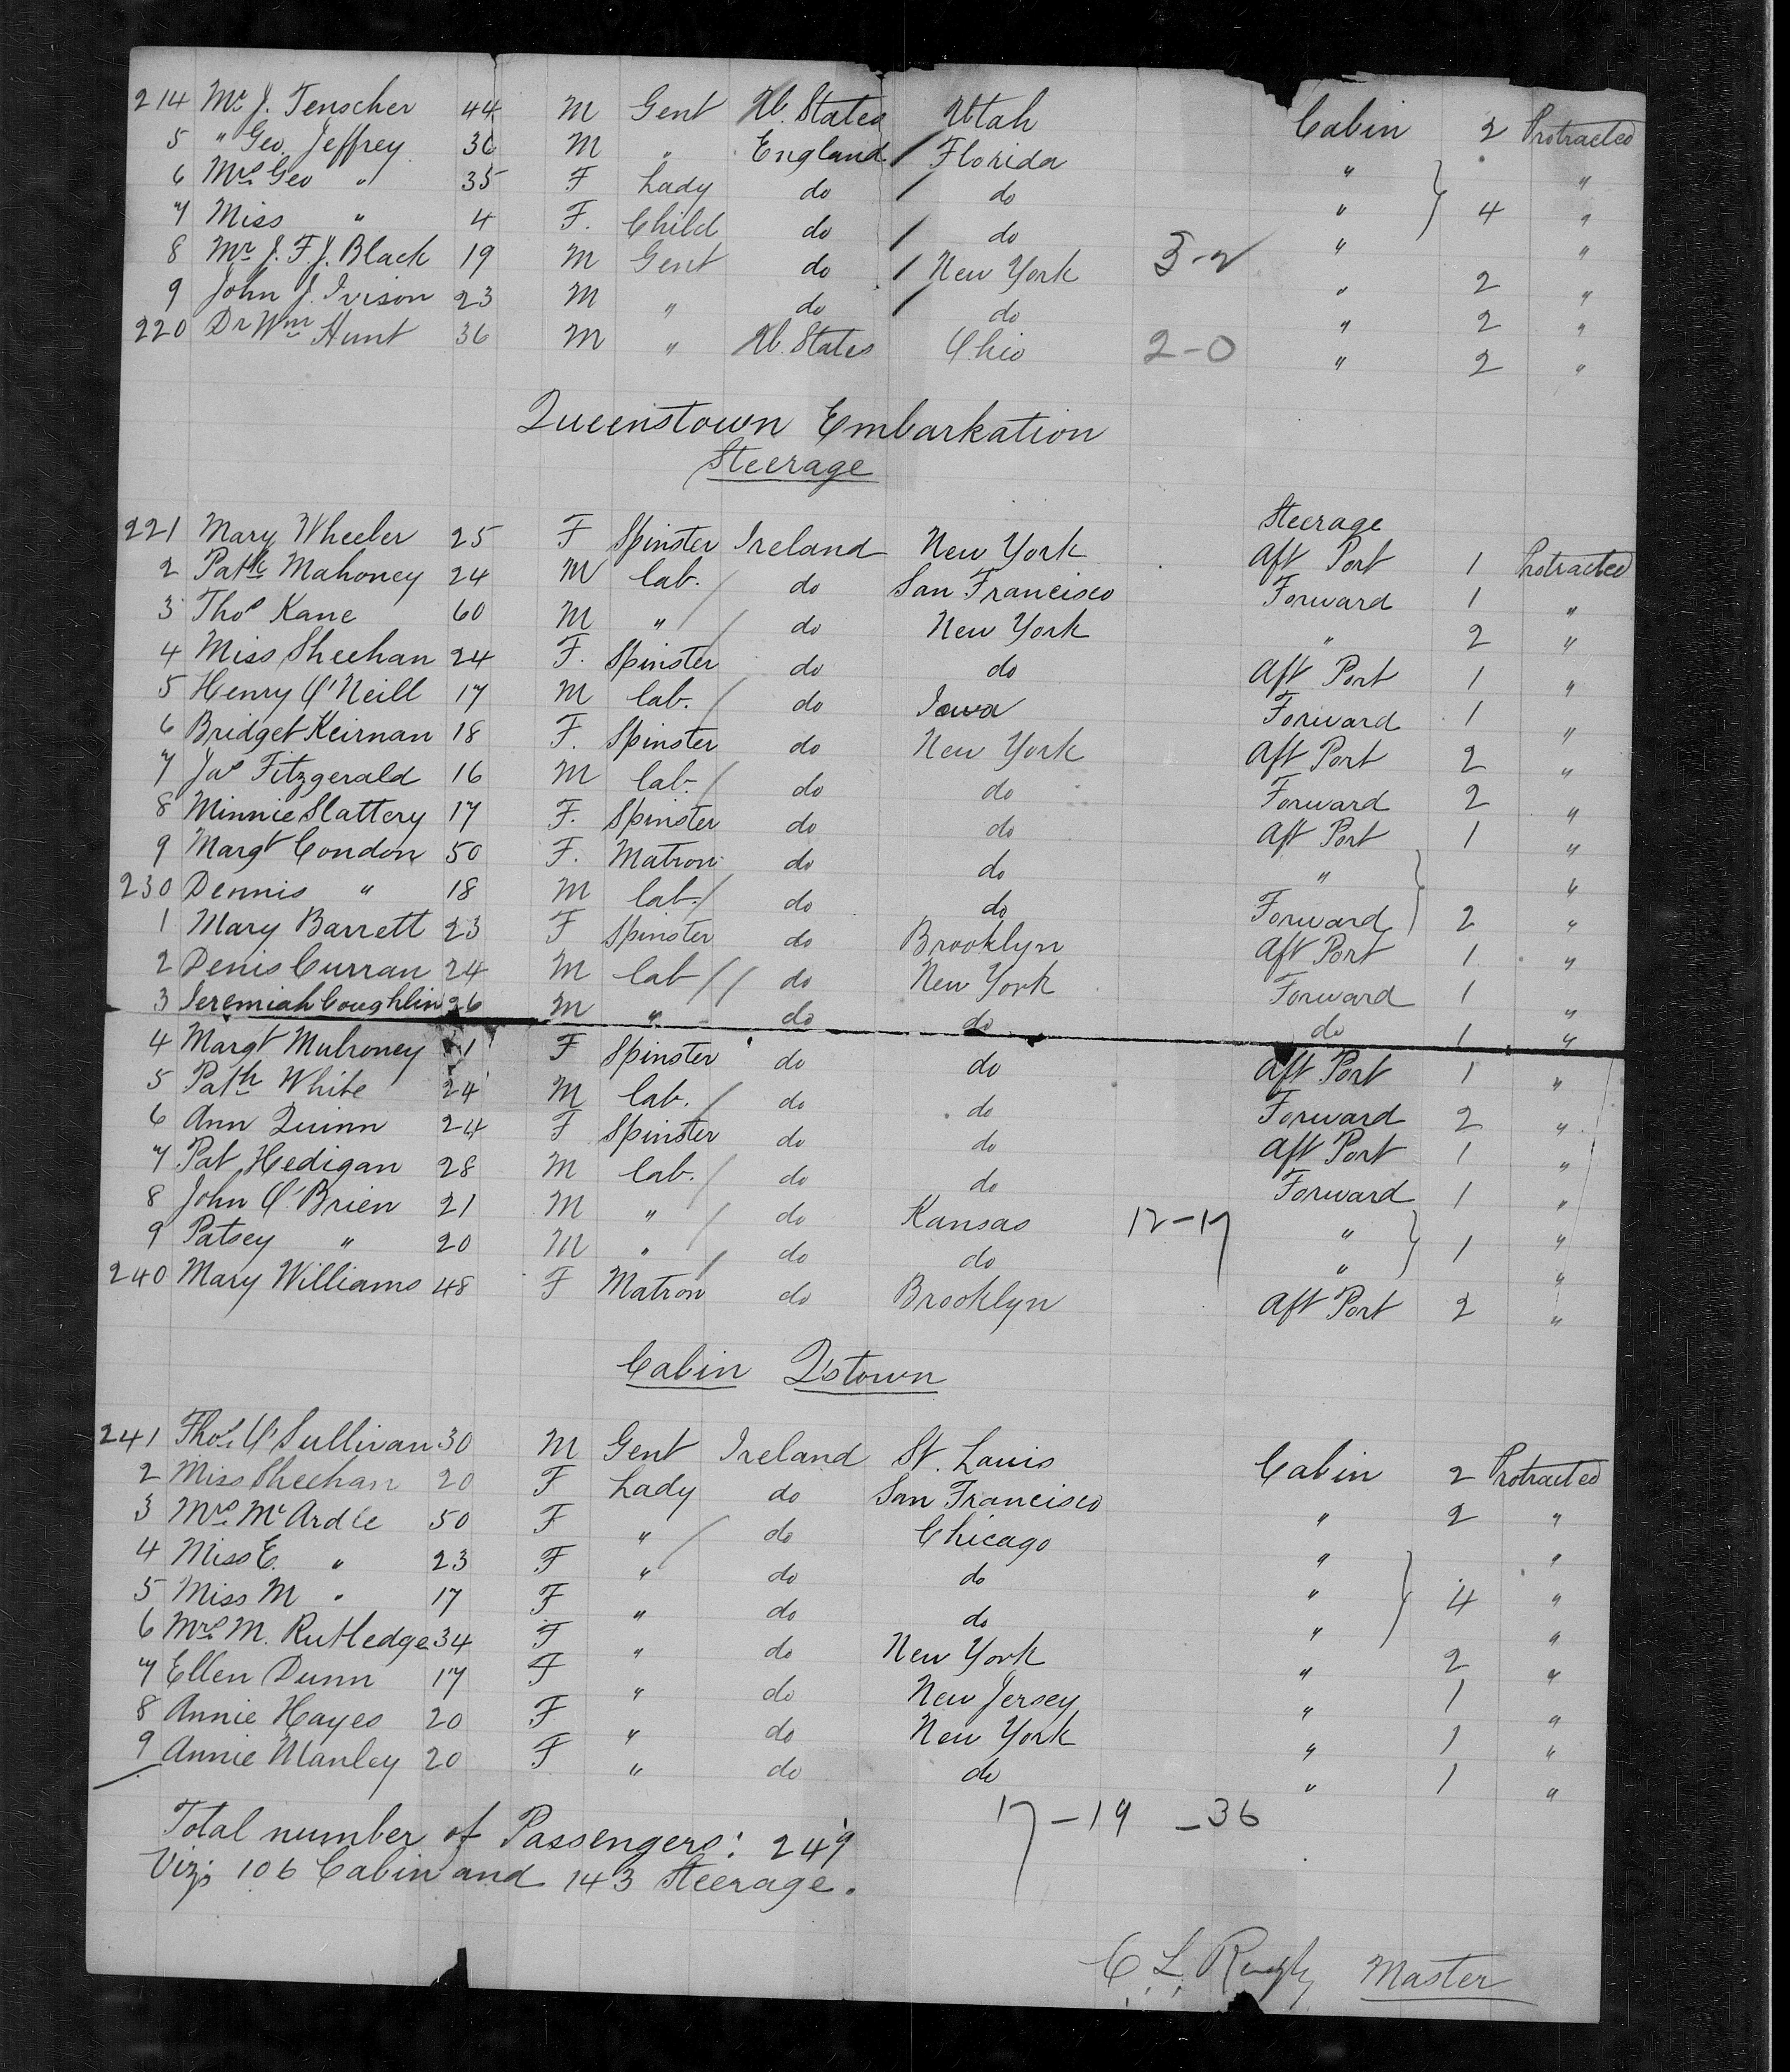 214 Mr J. Tenscher 44 M Gent U. States Utah Cabin 2 Protracted
5 " Geo. Jeffrey 36 M " England / Florida " "
6 Mrs Geo " 35 F Lady do / do " 4 "
7 Miss " 4 F. Child do / do " "
8 Mr J. F. J. Black 19 M Gent do / New York 5-2 " 2 "
9 John J. Ivison 23 M " do / do " 2 "
220 Dr Wm Hunt 36 M " U. States Ohio 2-0 " 2 "
Queenstown Embarkation
Steerage
Steerage
221 Mary Wheeler 25 F Spinster Ireland New York Aft Port 1 Protracted
2 Patk Mahoney 24 M lab. / do San Francisco Forward 1 "
3 Thos Kane 60 M " / do New York " 2 "
4 Miss Sheehan 24 F. Spinster do do Aft Port 1 "
5 Henry O'Neill 17 M lab. / do Iowa Forward 1 "
6 Bridget Keirnan 18 F. Spinster do New York Aft Port 2 "
7 Jas Fitzgerald 16 M lab. / do do Forward 2 "
8 Minnie Slattery 17 F. Spinster do do Aft Port 1 "
9 Margt Condon 50 F. Matron do do " "
230 Dennis " 18 M lab. / do do Forward 2 "
1 Mary Barrett 23 F Spinster do Brooklyn Aft Port 1 "
2 Denis Curran 24 M lab // do New York Forward 1 "
3 Jeremiah Coughlin 26 M " do do do 1 "
4 Margt Mulroney F Spinster do do Aft Port 1 "
5 Patk White 24 M lab. / do do Forward 2 "
6 Ann Quinn 24 F Spinster do do Aft Port 1 "
7 Pat Hedigan 28 M lab. / do do Forward 1 "
8 John O'Brien 21 M " / do Kansas 12-17 " "
9 Patsey " 20 M " / do do " 1 "
240 Mary Williams 48 F Matron do Brooklyn Aft Port 2 "
Cabin Q'stown
241 Thos. O'Sullivan 30 M Gent Ireland St. Louis Cabin 2 Protracted
2 Miss Sheehan 20 F Lady do San Francisco " 2 "
3 Mrs McArdle 50 F " / do Chicago " "
4 Miss E. " 23 F " do do " 4 "
5 Miss M " 17 F " do do " "
6 Mrs M. Rutledge 34 F " do New York " 2 "
7 Ellen Dunn 17 F " do New Jersey " 1 "
8 Annie Hayes 20 F " do New York " 1 "
9 Annie Manley 20 F " do do " 1 "
17-19-36
Total number of Passengers: 249
Viz; 106 Cabin and 143 Steerage.
C L. Master